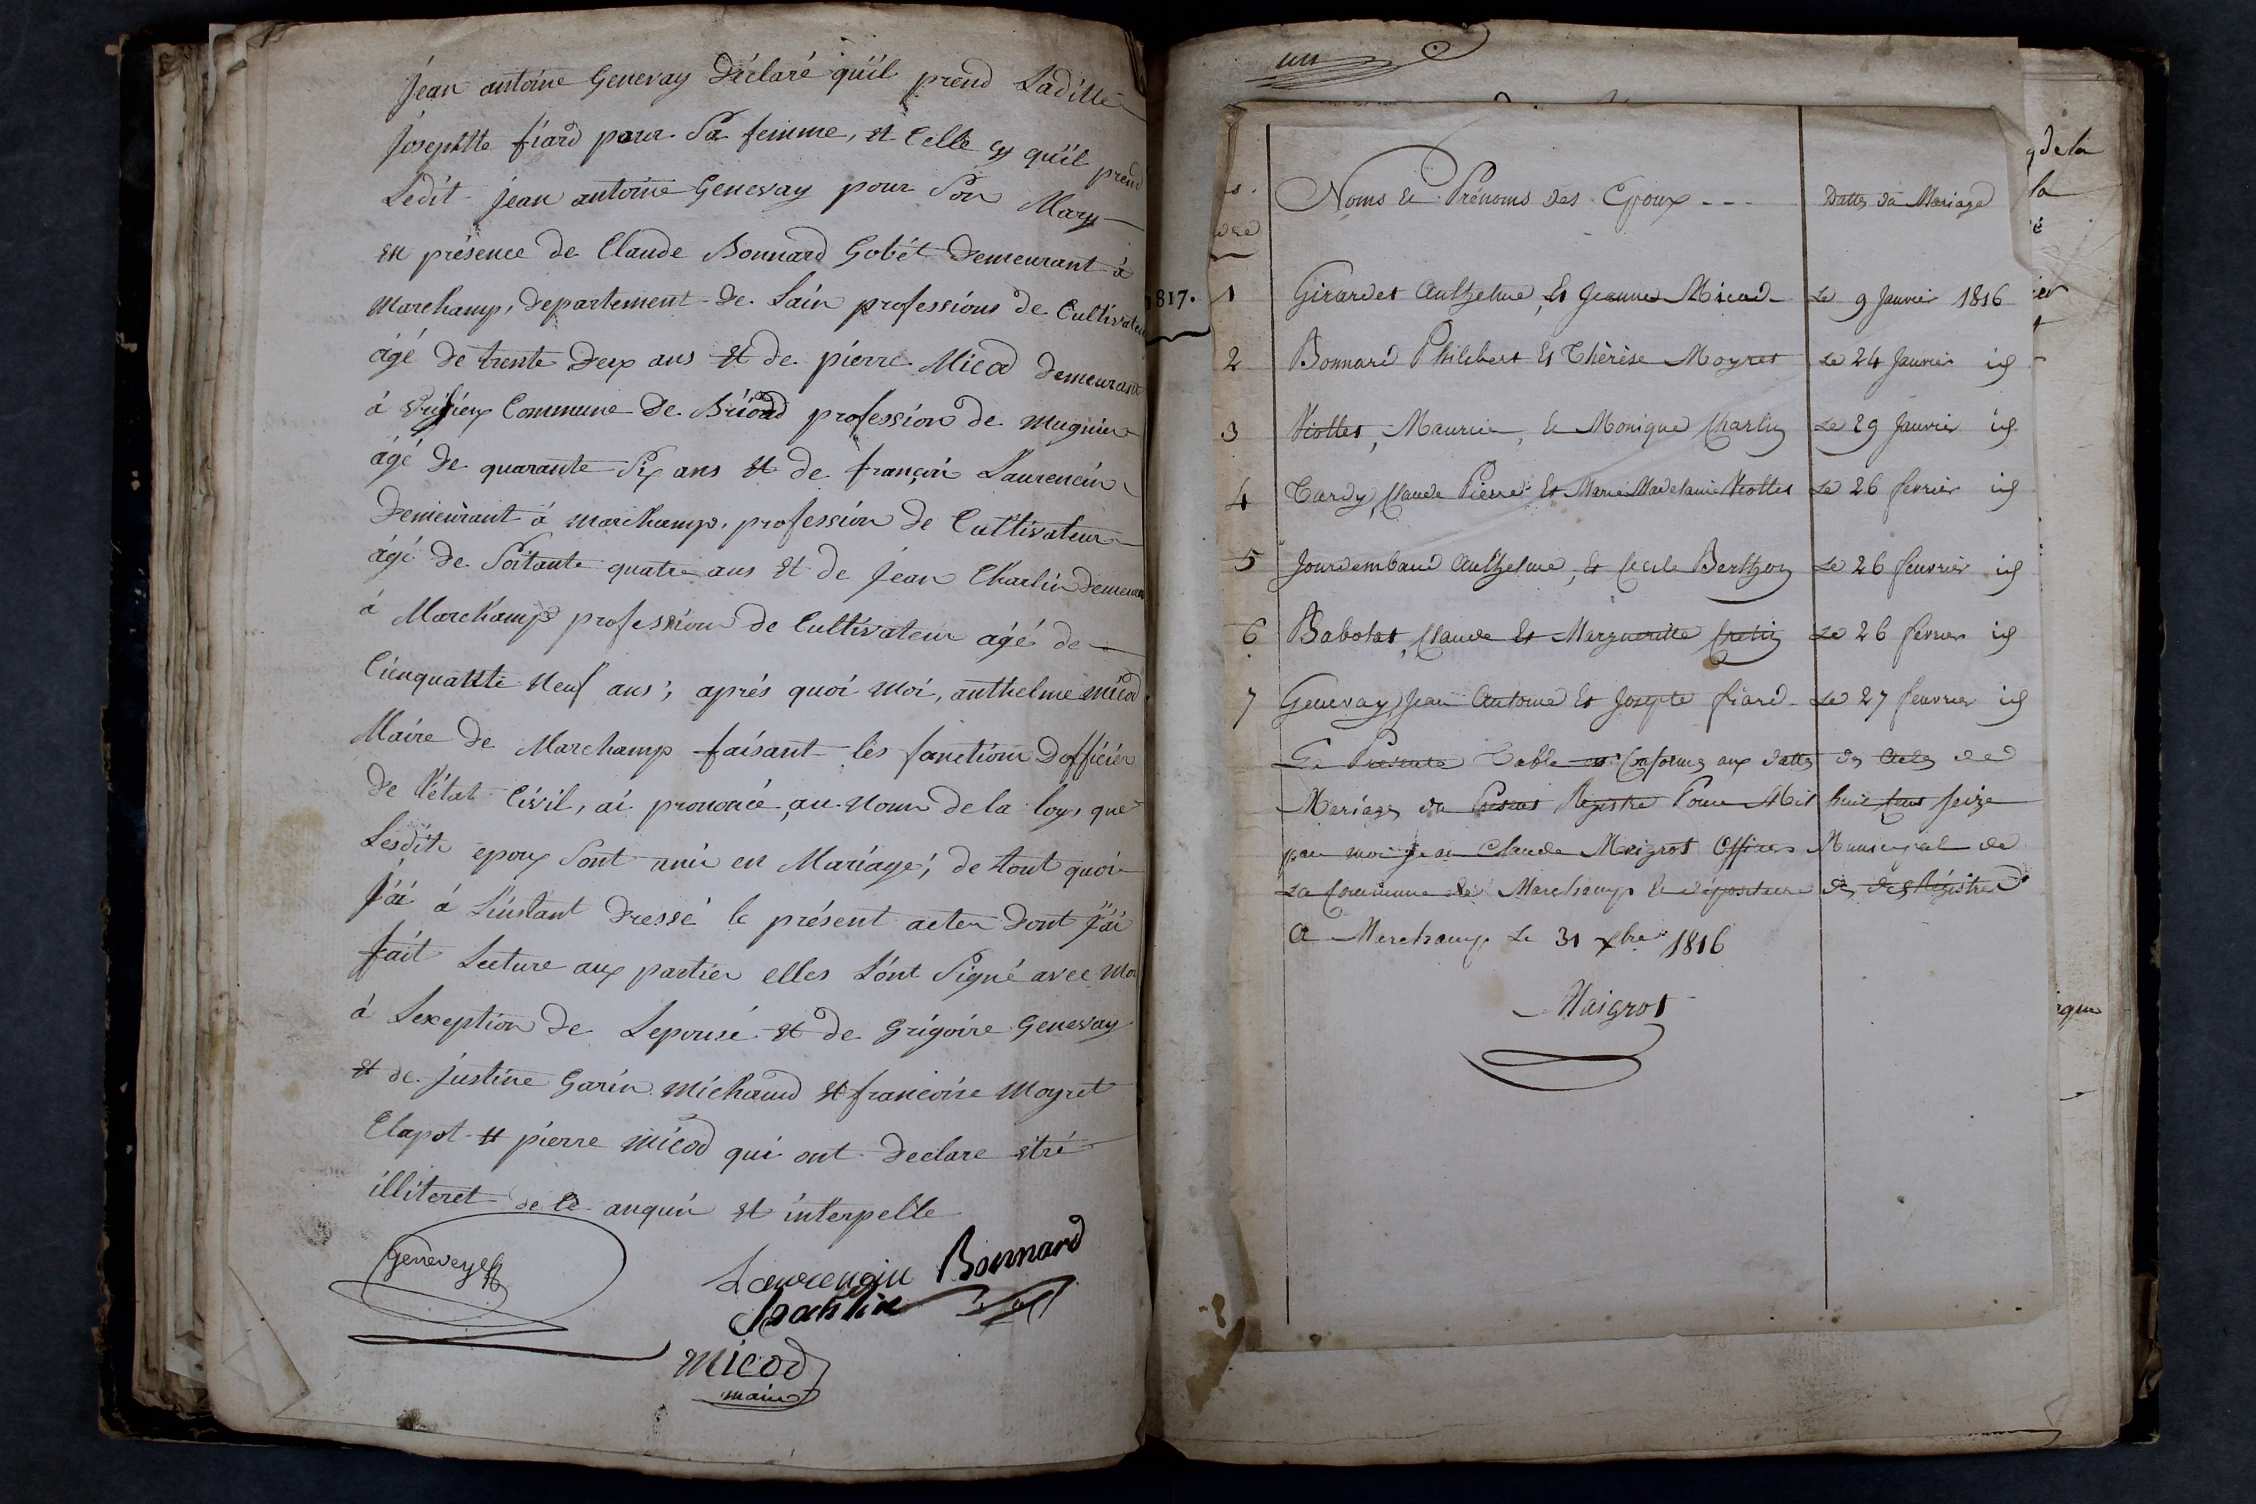 Jean antoine Genevay Déclaré qu'il prend Laditte
Josephtte fiard pour Sa femme, et Celle cy qu'il prend
Ledit Jean antoine Genevay pour Son Mary
en présence de Claude Bonnard Gobét Demeurant à
Marchamp, Departement de Lain professions de Cultivateur
âgé de trente Deux ans et de pierre Micod Demeurant
à Commune de Briord profession de Mugnier
âgé de quarante Six ans et de françois Laurencin
Demeurant à Marchamp, profession de Cultivateur
âgé de Soitante quatre ans et de Jean Charlin Demeurant
à Marchamp profession de Cultivateur agé de
Cinquantte Neuf ans; aprés quoi Moi, anthelme Micod
Maire de Marchamp faisant les fonctions Dofficier
de L'état Civil, ai prononcé, au Nom de la loy, que
Lesdits epoux Sont unis en Mariage; de tout quoi
J'ai à Linstant Dressé le présent acte Dont J'ai
fait Lecture aux parties elles L'ont Signé avec Moi
à Lexeption de Lepouse et de Grigoire Genevay
et de Justine Garin Michaud et francoise Moyret
Clapot et pierre Micod qui ont Declare etre
illiteret de ce anquis et interpelle
Geneveye
Laurencin Bonnard
Charlin
Micod
maire
un
1817.
Noms et Prénoms des Epoux - - - Dattes du Mariage
1 Girardet Anthelme, Et Jeanne Micod Le 9 Janvier 1816
2 Bonnard Philibert Et Thérèse Moyret Le 24 Janvier id
3 Viollet, Maurice, Et Monique Charlin Le 29 Janvier id
4 Tardy, Claude Pierre Et Marie Madelaine Viollet Le 26 fevrier id
5 Jourdembaud Anthelme, Et Cecile Berthon Le 26 feuvrier id
6 Babolat, Claude Et Margueritte Cretin Le 26 fevrier id
7 Genevay, Jean Antoine Et Josepte fiard Le 27 feuvrier id
La Présente Table est Conforme aux dattes des Actes de
Mariages du Présent Régistre Pour Mil huit Cent Seize
par moi Jean Claude Maigrot Officier Municipal de
La Commune de Marchamp Et dépositaire des Régistres
A Marchamp Le 31 xbre 1816
Maigrot
de la
la